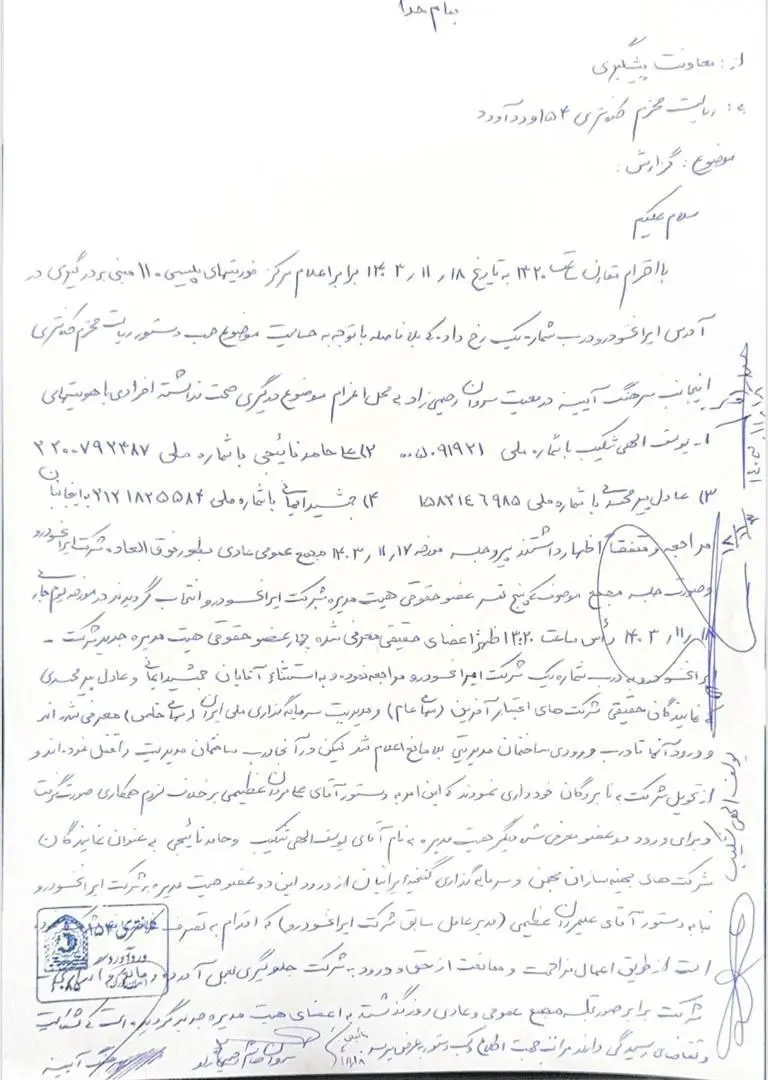 بنام خدا
از: معاونت پیشگیری
به: ریاست محترم کلانتری ۱۵۴ وردآورد
موضوع: گزارش:
سلام علیکم
با احترام مقارن ساعت ۱۳:۲۰ به تاریخ ۱۴۰۳٫۱۱٫۱۸ برابر اعلام مرکز فوریتهای پلیسی ۱۱۰ مبنی بر درگیری در
آدرس ایرانخودرو درب شماره یک رخ داده که بلافاصله با توجه به حساسیت موضوع حسب دستور ریاست محترم کلانتری
اینجانب سرهنگ آیینه در معیت سروان رحیمی راد به محل اعزام موضوع درگیری صحت نداشته افرادی با هویتهای
۱- یوسف الهی شکیب با شماره ملی ۰۰۵۰۹۱۹۲۱ ۲) حامد نائیجی با شماره ملی ۲۲۰۰۷۹۲۴۸۷
۳) عادل پیرمحمدی با شماره ملی ۱۵۸۲۱۴۶۹۸۵ ۴) جمشید ایمانی با شماره ملی ۲۱۲۱۸۲۵۵۸۴ به اینجانبان
مراجعه و متفقاً اظهار داشتند پیرو جلسه مورخه ۱۴۰۳٫۱۱٫۱۷ مجمع عمومی عادی بطور فوق العاده شرکت ایرانخودرو
و صورت جلسه مجمع موصوف که پنج نفر عضو حقوقی هیت مدیره شرکت ایرانخودرو انتخاب گردیدند در مورخه یوم جاری
۱۴۰۳٫۱۱٫۱۸ رأس ساعت ۱۳:۲۰ ظهر اعضای حقیقی معرفی شده چهار عضو حقوقی هیت مدیره جدید شرکت -
ایرانخودرو به درب شماره یک شرکت ایرانخودرو مراجعه نموده و به استثناء آقایان جمشید ایمانی و عادل پیرمحمدی
که نمایندگان حقیقی شرکت های اعتبار آفرین (سهامی عام) و مدیریت سرمایه گذاری ملی ایران (سهامی خاص) معرفی شده اند
و ورود آنها تا درب ورودی ساختمان مدیریتی بلامانع اعلام شد لیکن در آنجا درب ساختمان مدیریت را قفل نموده اند و
از تحویل شرکت به نامبردگان خودداری نمودند که این امر به دستور آقای علیمردان عظیمی بر خلاف لزوم همکاری صورت گرفت
و برای ورود دو عضو معرفی شده دیگر هیت مدیره به نام آقای یوسف الهی شکیب و حامد نائیجی به عنوان نمایندگان
شرکت های بهینه سازان بهمن و سرمایه گذاری گنجینه ایرانیان از ورود این دو عضو هیت مدیره به شرکت ایرانخودرو
بنا به دستور آقای علیمردان عظیمی (مدیر عامل سابق شرکت ایرانخودرو) که اقدام به تصرف
است از طریق اعمال مزاحمت و ممانعت از حق و ورود به شرکت جلوگیری بعمل آمده و
شرکت برابر صورتجلسه مجمع عمومی و عادی روز گذشته به اعضای هیت مدیره جدید گردیده است که شکایت
و تقاضای رسیدگی دارند مراتب جهت اطلاع و کسب دستور بعرض میرسد
سروان رحیمی راد
سرهنگ آیینه
کلانتری ۱۵۴
وردآورد
یوسف الهی شکیب